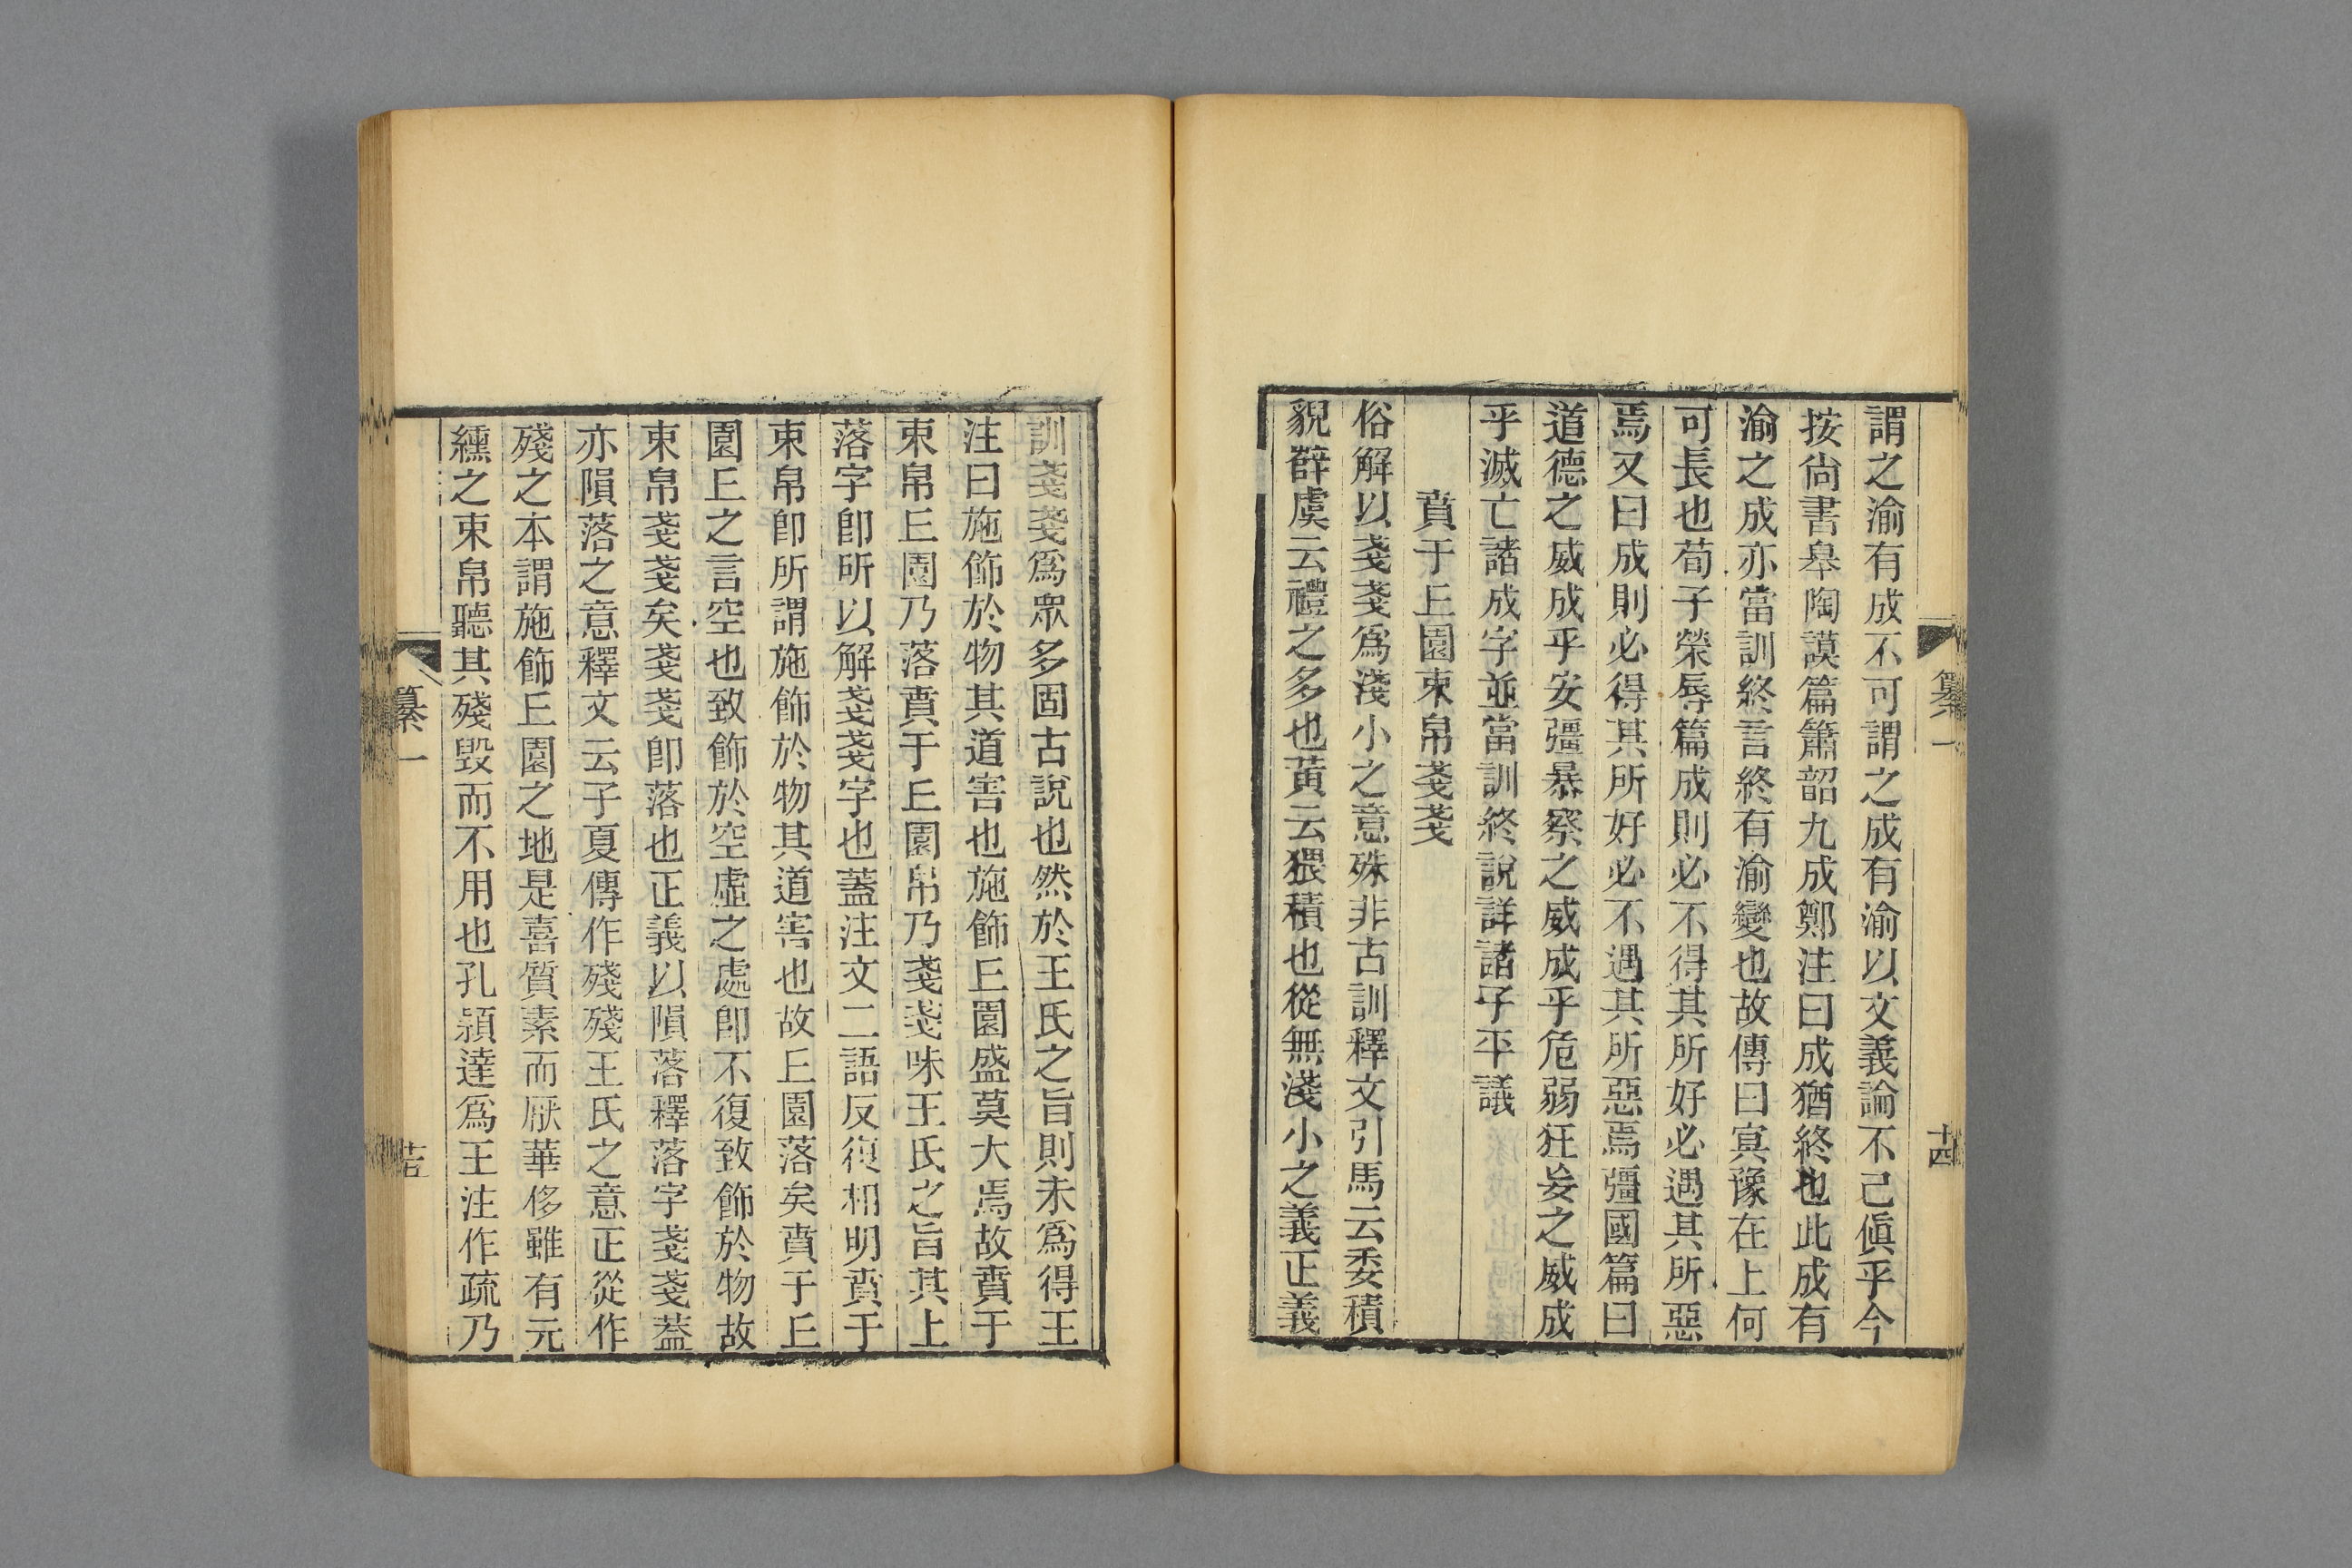 纂一
十四
謂之渝有成不可謂之成有渝以文義論不己傎乎今
按尙書皋陶謨篇簫韶九成鄭注曰成猶終也此成有
渝之成亦當訓終言終有渝變也故傳曰冥豫在上何
可長也荀子榮辱篇成則必不得其所好必遇其所惡
焉又曰成則必得其所好必不遇其所惡焉彊國篇曰
道德之威成乎安彊暴察之威成乎危弱狂妄之威成
乎滅亡諸成字並當訓終說詳諸子平議
賁于丘園束帛戔戔
俗解以戔戔爲淺小之意殊非古訓釋文引馬云委積
貌薛虞云禮之多也黃云猥積也從無淺小之義正義
訓戔戔爲眾多固古說也然於王氏之旨則未爲得王
注曰施飾於物其道害也施飾丘園盛莫大焉故賁于
束帛丘園乃落賁于丘園帛乃戔戔味王氏之旨其上
落字卽所以解戔戔字也蓋注文二語反復相明賁于
束帛卽所謂施飾於物其道害也故丘園落矣賁于丘
園丘之言空也致飾於空虛之處卽不復致飾於物故
束帛戔戔矣戔戔卽落也正義以隕落釋落字戔戔蓋
亦隕落之意釋文云子夏傳作殘殘王氏之意正從作
殘之本謂施飾丘園之地是喜質素而厭華侈雖有元
纁之束帛聽其殘毀而不用也孔潁達爲王注作疏乃
纂一
十五